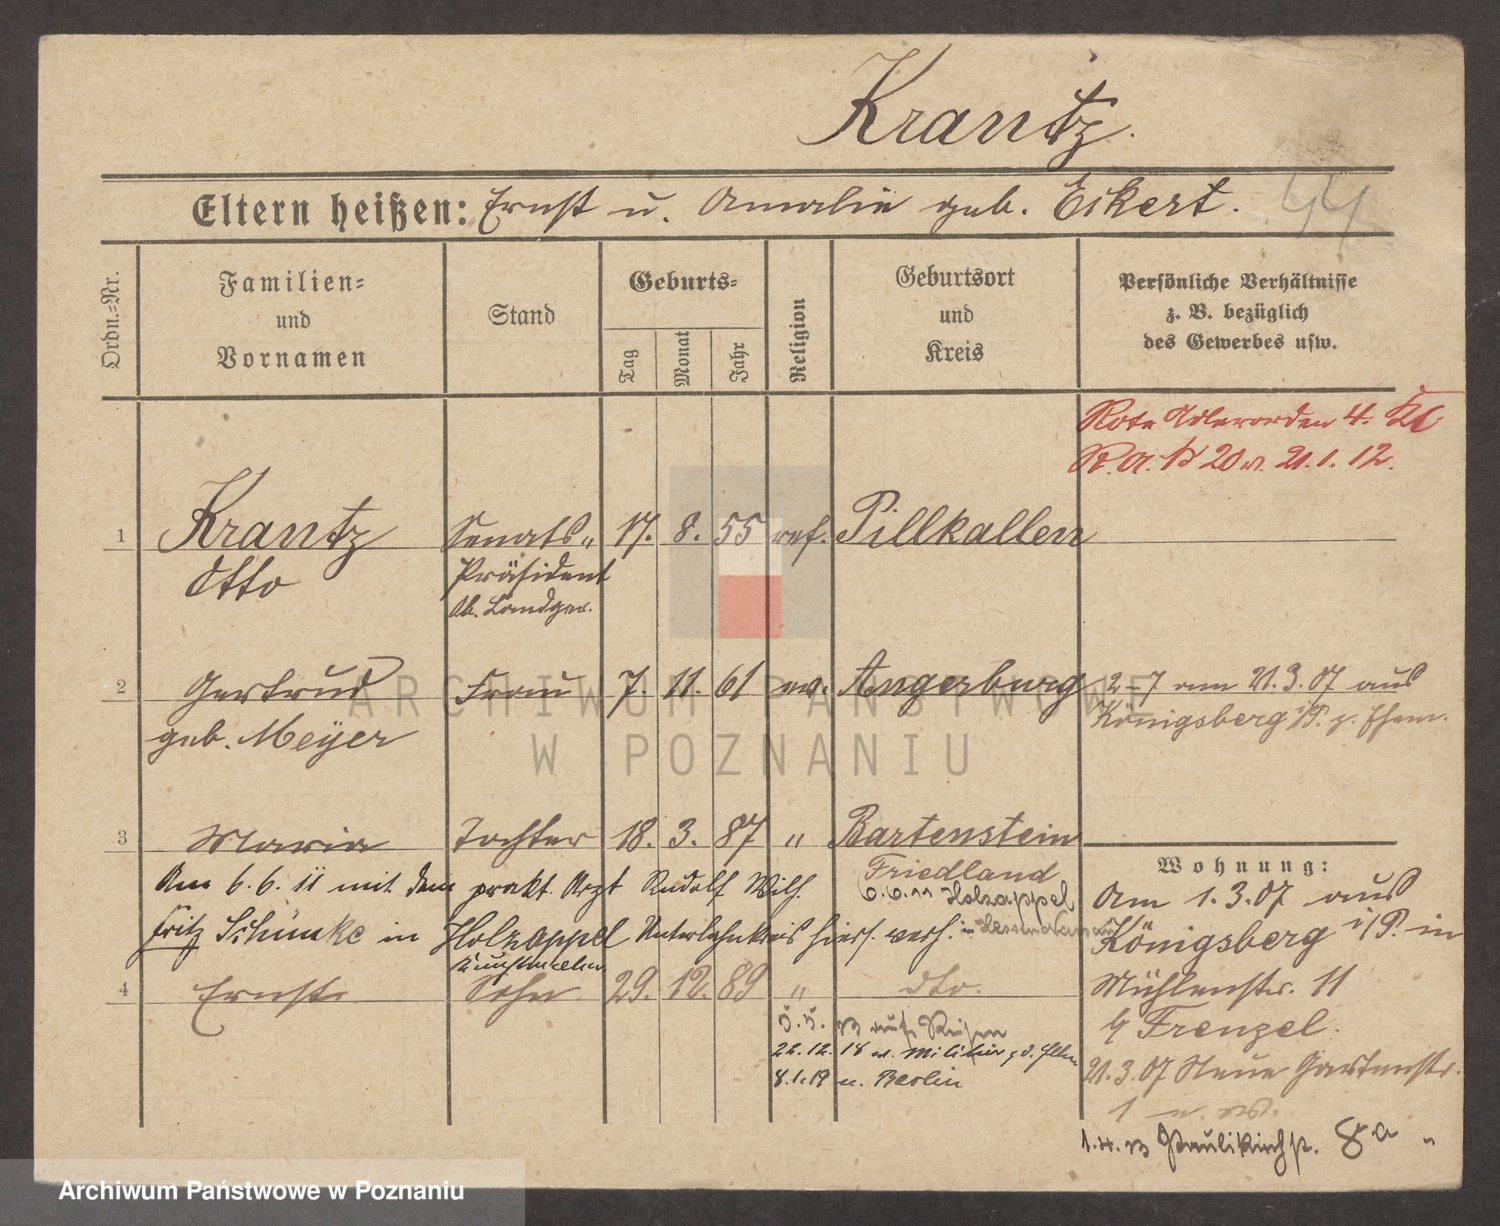 Krantz.
Eltern heißen: Ernst u. Amalie geb. Eckert.
Ordn.=Nr.
Familien=
und
Vornamen
Stand
Geburts=
Tag
Monat
Jahr
Religion
Geburtsort
und
Kreis
Persönliche Verhältnisse
z. B. bezüglich
des Gewerbes usw.
Rote Adlerorden 4. Kl.
20 v. 21.1.12.
1 Krantz Senats= 17. 8. 55 ref. Pillkallen
Otto Präsident
Ob. Landger.
2 Gertrud Frau 7. 11. 61 ev. Angerburg 2–7 am 21.3.07 aus
geb. Meyer Königsberg i/P. z. Ehem.
3 Maria Tochter 18. 3. 87 " Bartenstein
Friedland
Am 6.6.11 mit dem prakt. Arzt Rudolf Wilh.
6.6.11 Holzappel
Fritz Schimke in Holzappel Unterlahnkreis hiers. verh. in Hessen Nassau
4 Ernst Sohn 29. 12. 89 " dto.
5.5. 13 auf Reisen
22.12.18 v. Militär z. d. Eltern
8.1.19 n. Berlin
Wohnung:
Am 1.3.07 aus
Königsberg i/P. in
Mühlenstr. 11
b/ Frenzel.
21.3.07 Neue Gartenstr.
1
1.4.13 Paulikirchstr. 8a "
ARCHIWUM PAŃSTWOWE
W POZNANIU
Archiwum Państwowe w Poznaniu